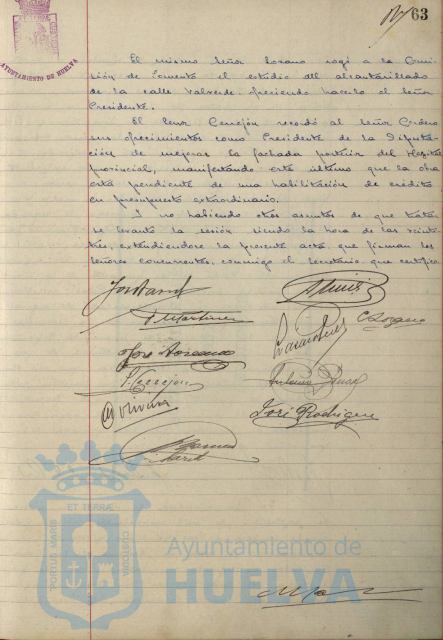 63
AYUNTAMIENTO DE HUELVA
El mismo Señor Lozano rogó a la Comi-
sión de Fomento el estudio del alcantarillado
de la calle Valverde, ofreciendo hacerlo el Señor
Presidente.
El Señor Cerrejón recordó al Señor Cordero
sus ofrecimientos como Presidente de la Diputa-
ción de mejorar la fachada posterior del Hospital
provincial, manifestando este último que la obra
está pendiente de una habilitación de crédito
en presupuesto extraordinario.
Y no habiendo otros asuntos de que tratar
se levantó la sesión siendo la hora de las veinti-
tres, extendiendose la presente acta que firman los
señores concurrentes, conmigo el Secretario que certifico.
Martinez
C Lozano
Cerrejón
Olivares
José Rodriguez
PORTUS MARIS ET TERRAE CUSTODIA
Ayuntamiento de
HUELVA